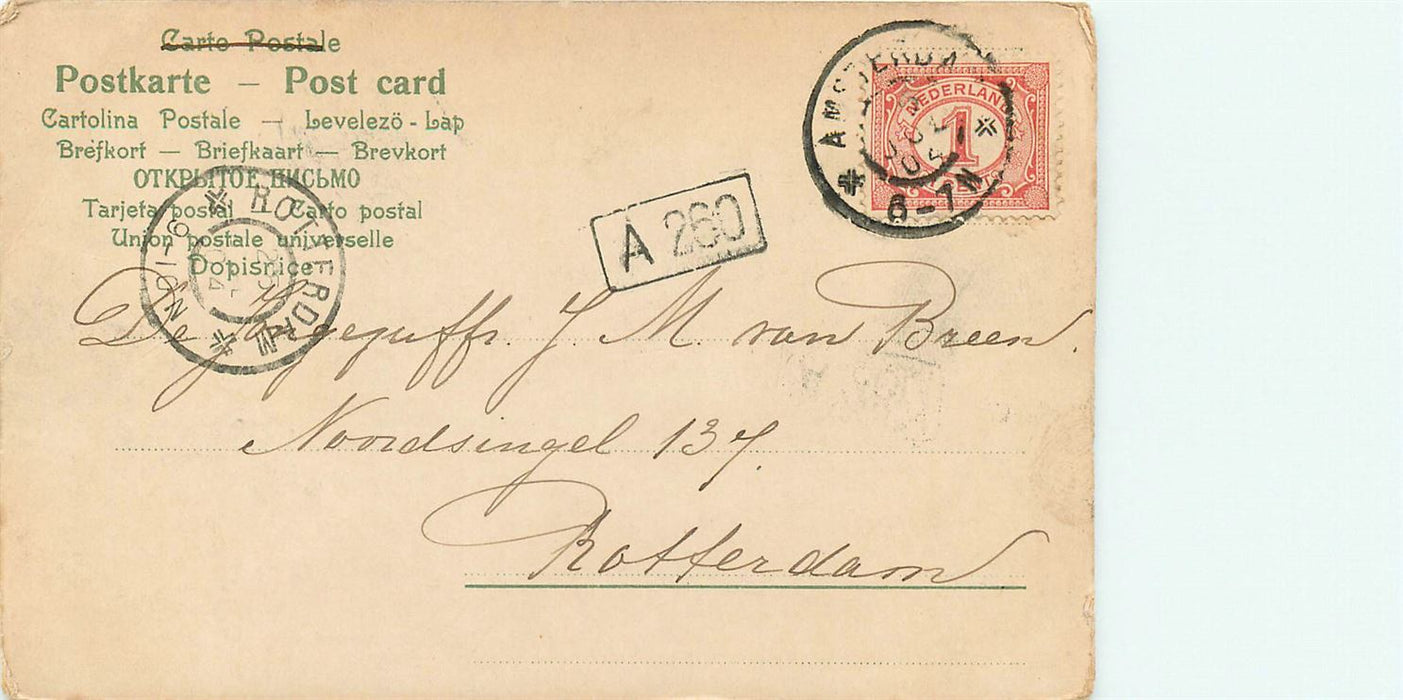 Carte Postale
Postkarte — Post card
Cartolina Postale — Levelezö-Lap
Brefkort — Briefkaart — Brevkort
ОТКРЫТОЕ ПИСЬМО
Tarjeta postal — Carto postal
Union postale universelle
Dopisnice
AMSTERDAM
JUL
04
6-7N
NEDERLAND
1
CENT
A 260
ROTTERDAM
9-10N
De J. M. van Breen.
Noordsingel 137.
Rotterdam